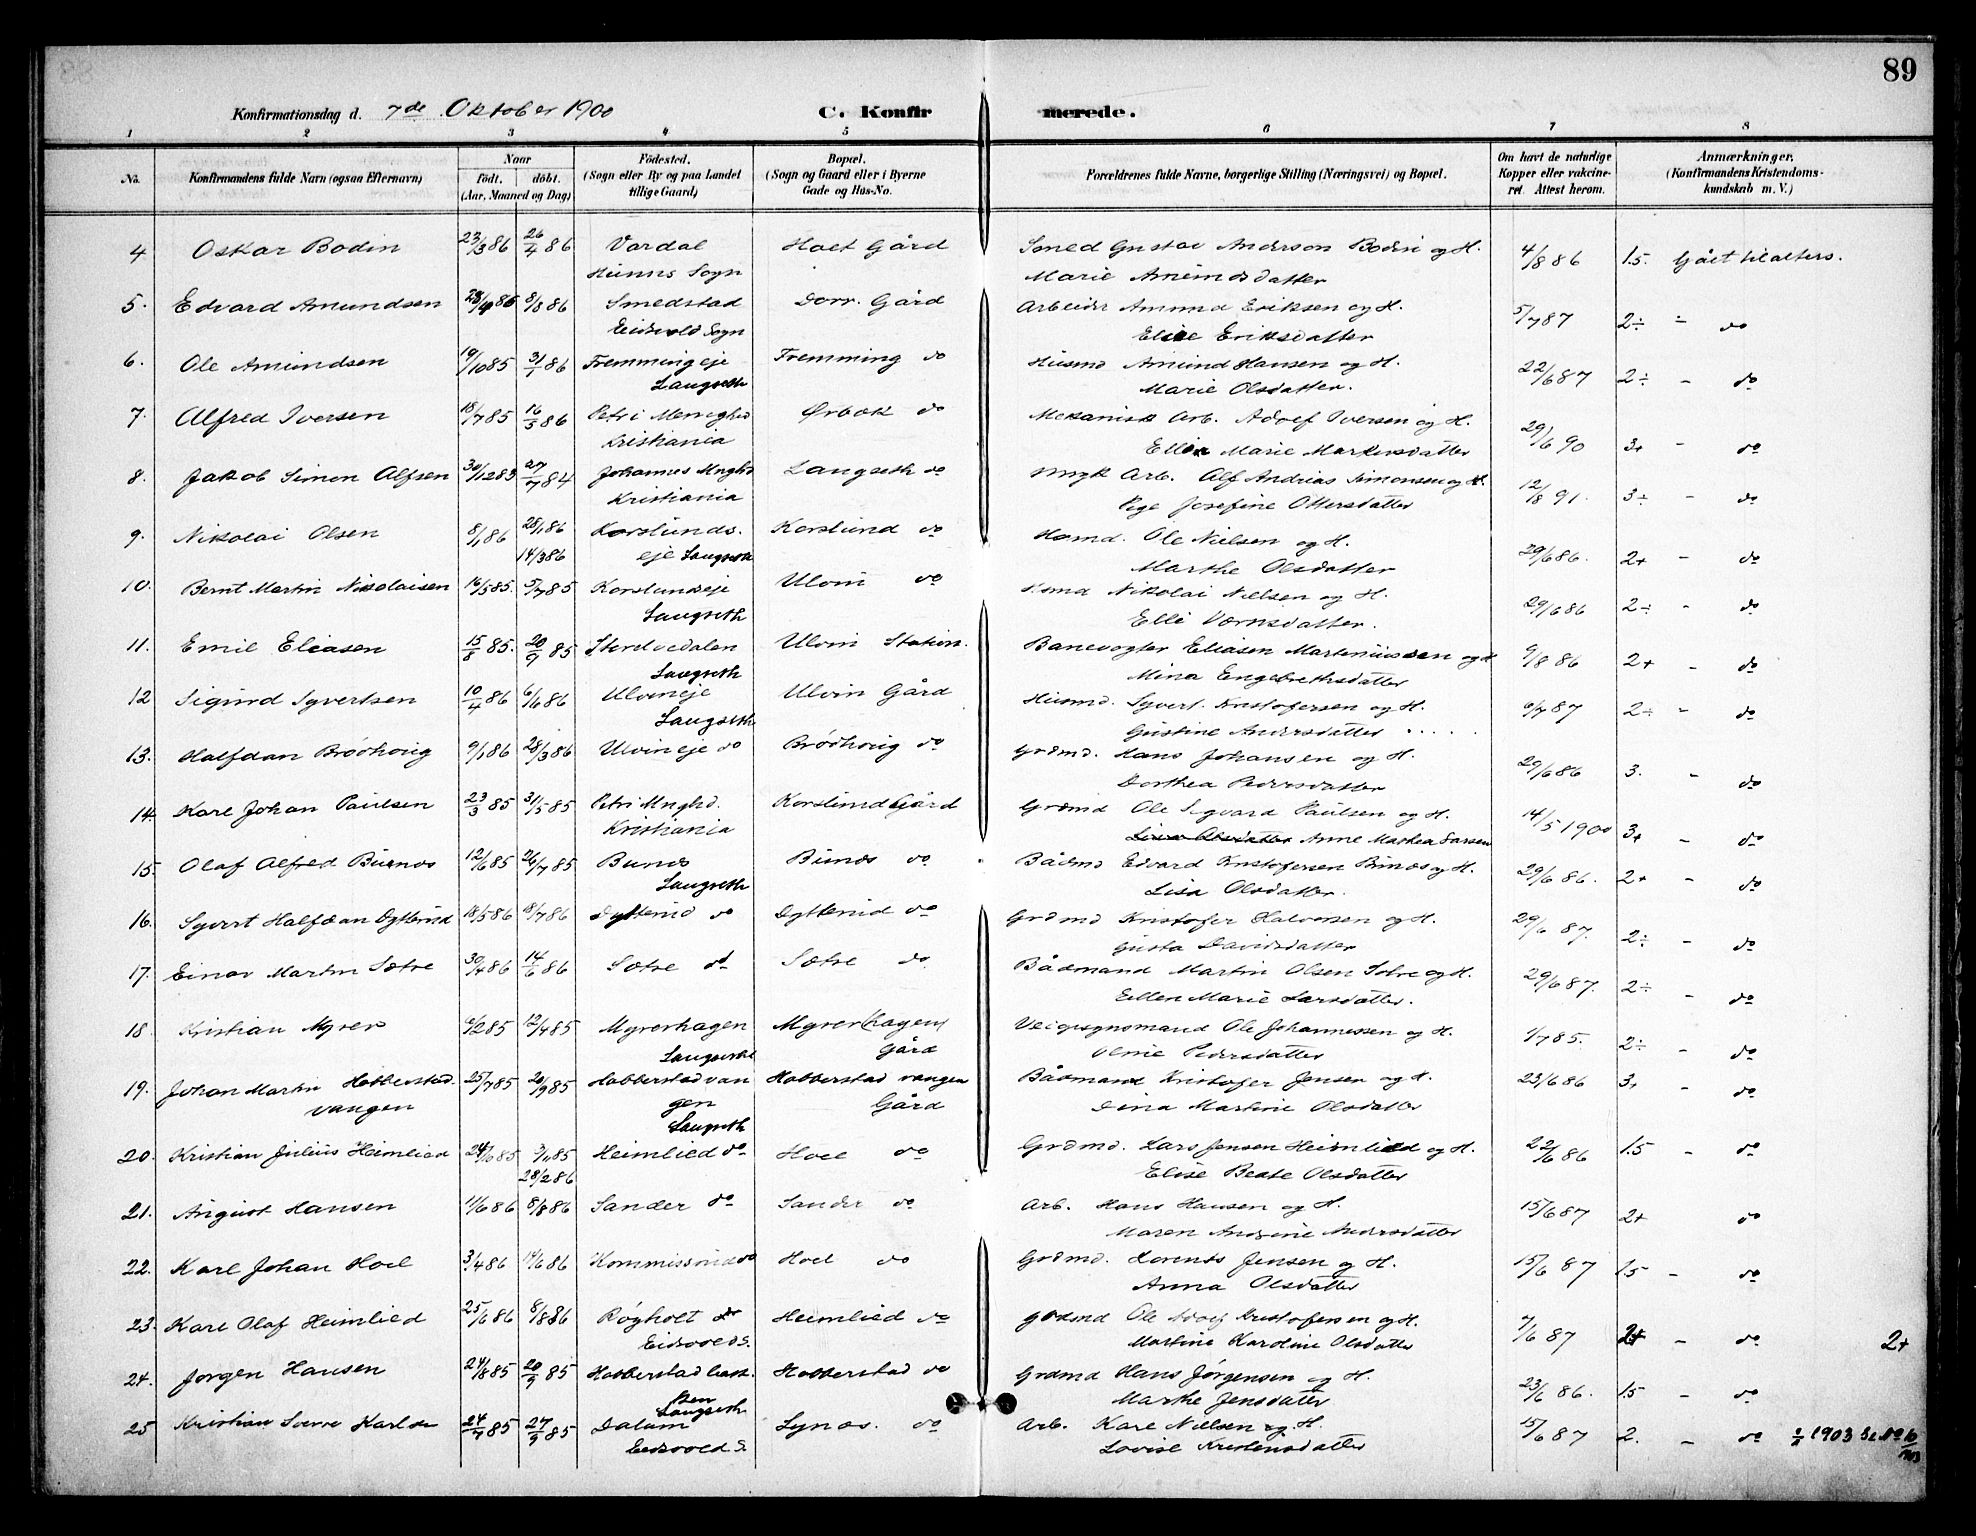 89
Konfirmationsdag d. 7de Oktober 1900 C. Konfirmerede.
1 2 3 4 5 6 7 8
No. Konfirmandens fulde Navn (ogsaa Efternavn) Naar født. døbt. (Aar, Maaned og Dag) Fødested. (Sogn eller By og paa Landet tillige Gaard) Bopæl. (Sogn og Gaard eller i Byerne Gade og Hus-No. Forældrenes fulde Navne, borgerlige Stilling (Næringsvei) og Bopæl. Om havt de naturlige Kopper eller vakcineret. Attest herom. Anmærkninger. (Konfirmandens Kristendomskundskab m. V.)
4 Oskar Bodin 23/3 86 26/4 86 Vardal Hoel Gård Smed Gustav Anderson Bodin og H. 4/8 86 1.5. Gået til alters.
Hunns Sogn Marie Amundsdatter
5. Edvard Amundsen 28/4 86 8/8 86 Smedstad Dorr. Gård Arbeider Amund Eriksen og H. 5/7 87 2÷ - do
Eidsvold Sogn Elise Eriksdatter
6. Ole Amundsen 19/10 85 31/1 86 Fremming eje Fremming do Husmd Amund Hansen og H. 22/6 87 2÷ - do
Langseth Marie Olsdatter.
7. Alfred Iversen 18/7 85 16/5 86 Petri Menighd Ørbæk do Mekanisk Arb. Adolf Iversen og H. 29/6 90 3+ - do
Kristiania Marie Markusdatter
8. Jakob Simon Alfsen 30/12 83 27/7 84 Johannes Mnghd Langseth do Arb. Alf Andrias Simonsen og H. 12/8 91. 3÷ - do
Kristiania Josefine Ottersdatter
9. Nikolai Olsen 8/1 86 28/1 86 Korslunds. Korslund do Hsmd. Ole Nielsen og H. 29/6 86. 2+ - do
14/3 86 eje Langseth Marthe Olsdatter
10. Bernt Martin Nikolaisen 16/5 85. 5/7 85 Korslundseje Ulvin do Hsmd Nikolai Nielsen og H. 29/6 86 2÷ - do
Langseth Elli
11. Emil Eliasen 15/8 85. 20/9 85 Ulvin Station. Banevogter Eliasen Martiniussen og H 9/8 86 2+ - do
Langseth Mina Engebrethsdatter
12 Sigurd Syvertsen 10/4 86 6/6 86 Ulvineje Ulvin Gård Husmd. Syvert Kristofersen og H. 6/7 87 2÷ - do
Langseth Gustine Andersdatter
13. Halfdan Brødhoug 9/1 86 28/3 86 Ulvineje do Brødhoug do Grdmd. Hans Johansen og H. 29/6 86 3. - do
Dorthea Pedersdatter
14. Karl Johan Paulsen 23/3 85 31/5 85 Petri Mnghd. Korslund Gård Grdmd Ole Sigvard Paulsen og H. 14/5 1900 3+ - do
Kristiania Anne Mathea Larsen
15. Olaf Alfred Bunæs 12/6 85 26/7 85 Bunæs Bunæs do Bådmd Edvard Kristofersen Bunæs og H. 29/6 86. 2+ - do
Langseth Lisa Olsdatter.
16. Syvert Halfdan Dytterud 18/5 86 18/7 86 Dytterud do Dytterud do Grdmd Kristofer Halvorsen og H. 29/6 87. 2÷ - do
Gusta Davidsdatter
17. Einar Martin Sætre 30/4 86 14/6 86 Sætre do Sætre do Bådmand Martin Olsen Sætre og H. 29/6 87. 2÷ - do
Ellen Marie Larsdatter.
18. Kristian Myrer 6/2 85 12/4 85 Myrerhagen Myrer(hagen) Ole Johannessen og H. 1/7 85. 2÷ - do
Langseth Gård Pedersdatter
19. Johan Martin Hobberstad. 25/7 85 20/9 85 Hobberstadvan Hobberstad vangen Bådmand Kristofer Jensen og H. 23/6 86 3+ - do
vangen gen Gård Dina Martine Olsdatter
Langseth
20. Kristian Julius Heimlied Heimlied do Hoel do Grdmd. Lars Jensen Heimlied og H. 22/6 86 1.5 - do
28/2 86 Elise Beate Olsdatter
21. August Hansen 11/6 86 8/8 86 Sander do Sander do Arb. Hans Hansen og H. 15/6 87 2+ do
Maren Andrine Andersdatter
22. Karl Johan Hoel 3/4 86 14/6 86 Kommissrud do Hoel do Grdmd. Lorents Jensen og H. 15/6 87 1.5 - do
Anna Olsdatter
23. Karl Olaf Heimlied 25/6 86 8/8 86 Røgholt do Heimlied do Grdmd Ole Kristofersen og H. 7/6 87 2+ - do 2+
Eidsvold S. Martine Karoline Olsdatter
24. Jørgen Hansen 24/8 85 20/9 85 Hobberstad bak. Hobberstad do Grdmd Hans Jørgensen og H. 23/6 86. 1.5 - do
ken Langseth Marthe Jensdatter
25 Kristian Sverre Karlsen 24/7 85 27/9 85 Dalum Synæs. do Arb. Karl Nielsen og H. 15/6 87 2. - do 1903 Se No 10
Eidsvold S. Lovise Kristensdatter 1903